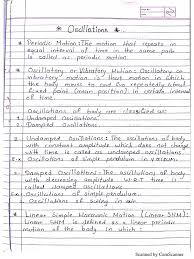 Oscillations
* Periodic Motion: The motion that repeats in
equal interval of time on the same path
is called as periodic motion
* Oscillatory or Vibratory Motion: Oscillatory or
vibratory motion is that motion in which the
body moves to and fro repeatedly about
fixed point (mean position) in certain interval
of time.
Oscillations of body are classified as:
1. Undamped Oscillations:
2. Damped Oscillations
1. Undamped Oscillations: The oscillations of body
with constant amplitude which does not change
with time is called as undamped oscillations
Ex: Oscillations of simple pendulum in vacuum.
Damped Oscillations: The oscillations of body
with decreasing amplitude W.R.T time is called
Ex: Oscillations of simple pendulum.
Oscillations of swing in air
* Linear Simple Harmonic Motion (Linear SHM):
Linear SHM is defined as a linear periodic
motion of the body in which
Scanned by CamScanner